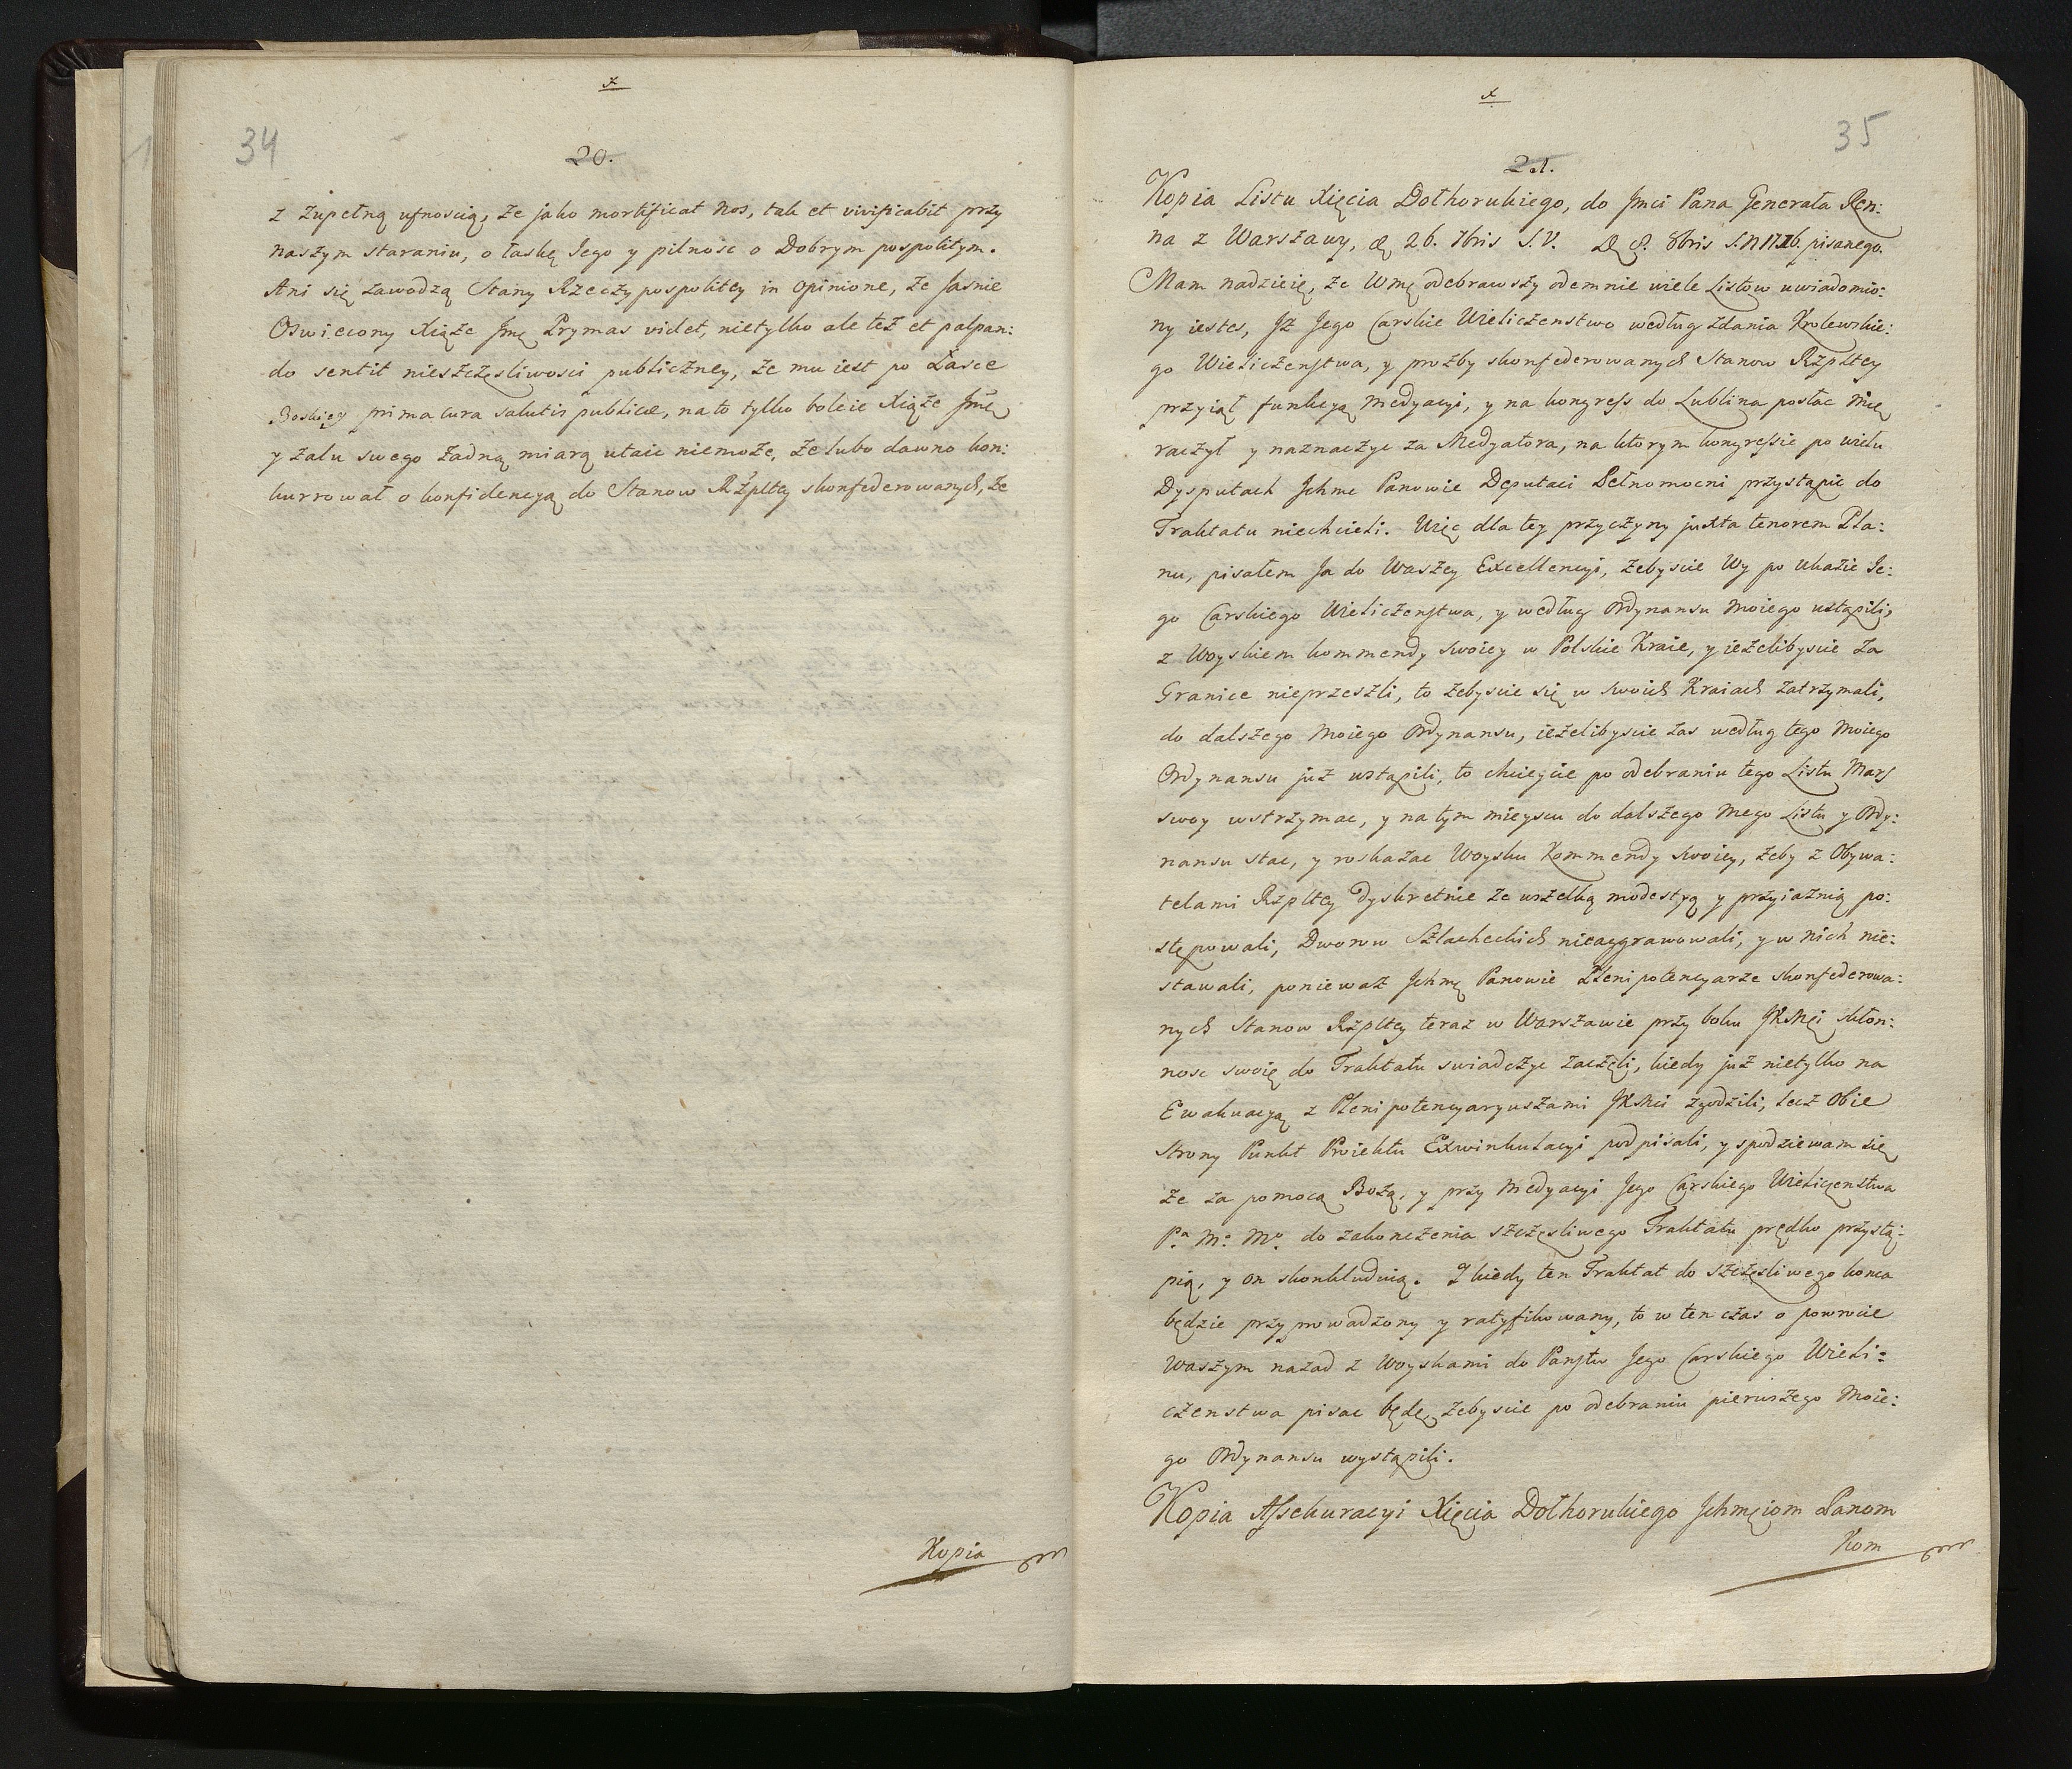 x
34
20.
z zupełną ufnoscią, że jako mortificat nos, tak et vivificabit przy
naszym staraniu, o łaskę Jego y pilnosc o Dobrym pospolitym.
Ani się zawodzą Stany Rzeczypospolitey in opinione, że Jasnie
Oswiecony Xiąże Jmę Prymas videt, nietylko ale też et palpan:
do sentit nieszczęsliwosci publiczney, że mu iest po Łasce
Boskiey prima cura salutis publicæ, na to tylko boleie Xiąże Jmę
y zalu swego żadną miarą utaic niemoże, że lubo dawno kon:
kurrował o konfidencyą do Stanow Rżpltey skonfederowanych, że
Kopia
x
35
21.
Kopia Listu Xięcia Dołhorukiego, do Jmci Pana Generała Ren:
na z Warszawy, 26. 7bris S.V. 8bris S.N. pisanego.
Mam nadzieię, że Wmę odebrawszy odemnie wiele Listow uwiadomio:
ny iestes, Jż Jego Carskie Wieliczenstwo według zdania Krolewskie:
go Wieliczenstwa, y prożby skonfederowanych Stanow Rzpltey
przyiął funkcyą Medyacyi, y na kongress do Lublina posłac mię
raczył y naznaczyc za Medyatora, na ktorym kongressie po wielu
Dysputach Jchmc Panowie Deputaci Pełnomocni przystąpic do
Traktatu niechcieli. Więc dla tey przyczyny juxta tenorem Pla:
nu, pisałem Ja do Waszey Excellencyi, żebyscie Wy po Ukazie Je:
go Carskiego Wieliczenstwa, y według Ordynansu Moiego ustąpili,
z Woyskiem kommendy swoiey w Polskie Kraie, y ieżelibyscie za
Granice nieprzeszli, to żebyscie się w swoich Kraiach zatrzymali,
do dalszego Moiego Ordynansu, ieżelibyscie zas według tego Moiego
Ordynansu już ustąpili, to chcieycie po odebraniu tego Listu Mars
swoy wstrzymac, y na tym mieyscu do dalszego mego Listu y Ordy:
nansu stac, y roskazac Woysku Kommendy swoiey, żeby z Obywa:
telami Rzpltey Dyskretnie ze wszelką modestyą y przyiaznią po:
stępowali, Dworow Szlacheckich nieaggrawowali, y w nich nie:
stawali, poniewaz Jchmę Panowie Plenipotencyarze skonfederowa:
nych Stanow Rzpltey teraz w Warszawie przy boku JKMci skłon:
nosc swoię do Traktatu swiadczyc zaczęli, kiedy już nietylko na
Ewakuacyą z Plenipotencyaryuszami JKMci zgodzili, lecz Obie
Strony Punkt Proiektu Exwinkulacyi podpisali, y spodziewam się
że za pomocą Bożą, y przy Medyacyi Jego Carskiego Wieliczenstwa
Pa Mo Mo do zakonczenia szczęsliwego Traktatu prędko przystą:
pią, y on skonkludnią. I kiedy ten Traktat do szczęsliwego konca
będzie przyprowadzony y ratyfikowany, to w ten czas o powrocie
Waszym nazad z Woyskami do Panstw Jego Carskiego Wieli:
czenstwa pisac będę, żebyscie po odebraniu pierwszego Moie:
go Ordynansu wystąpili.
Kopia Assekuracyi Xięcia Dołhorukiego Jchmęiom Panom
Kom